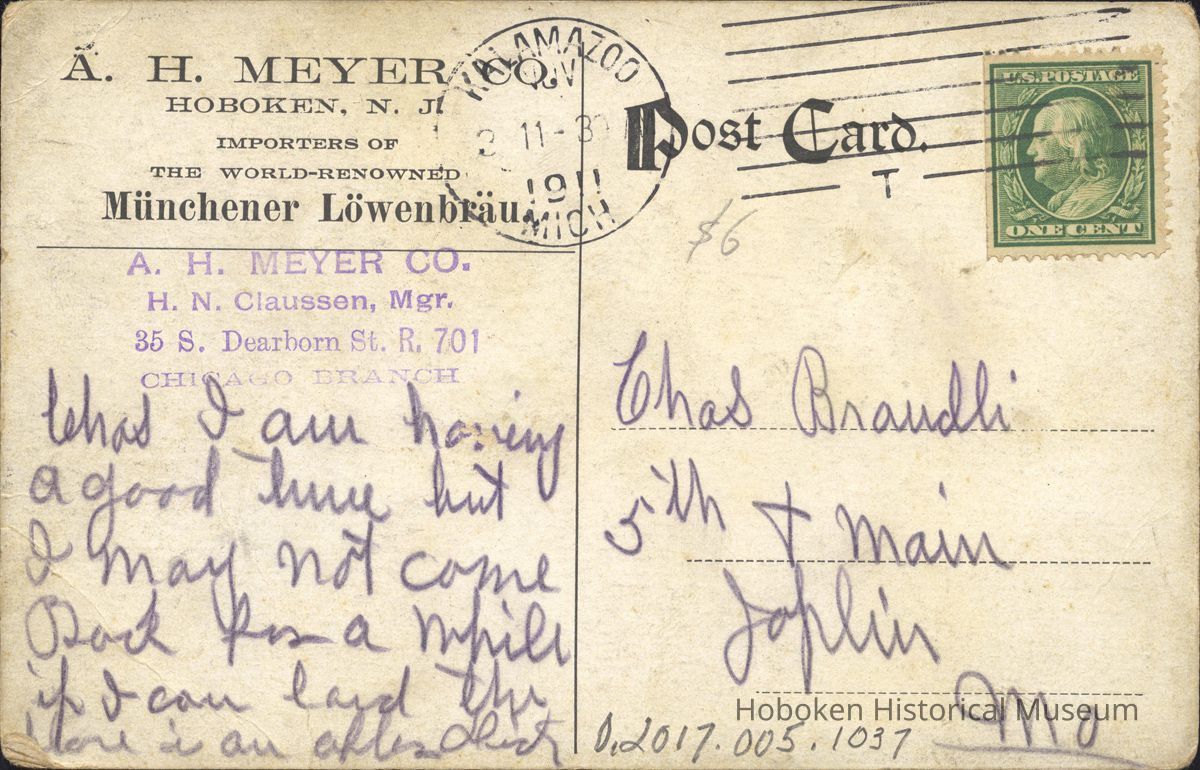 A. H. MEYER CO.
HOBOKEN, N. J.
IMPORTERS OF
THE WORLD-RENOWNED
Münchener Löwenbräu.
A. H. MEYER CO.
H. N. Claussen, Mgr.
35 S. Dearborn St. R. 701
CHICAGO BRANCH
Chas I am having
a good time but
I may not come
Back for a while
if I can land the
an
KALAMAZOO
NOV
11-30
1911
MICH
Post Card.
T
U.S. POSTAGE
ONE CENT
$6
Chas Brandli
5th + Main
Joplin
Mo
Hoboken Historical Museum
0.2017.005.1037